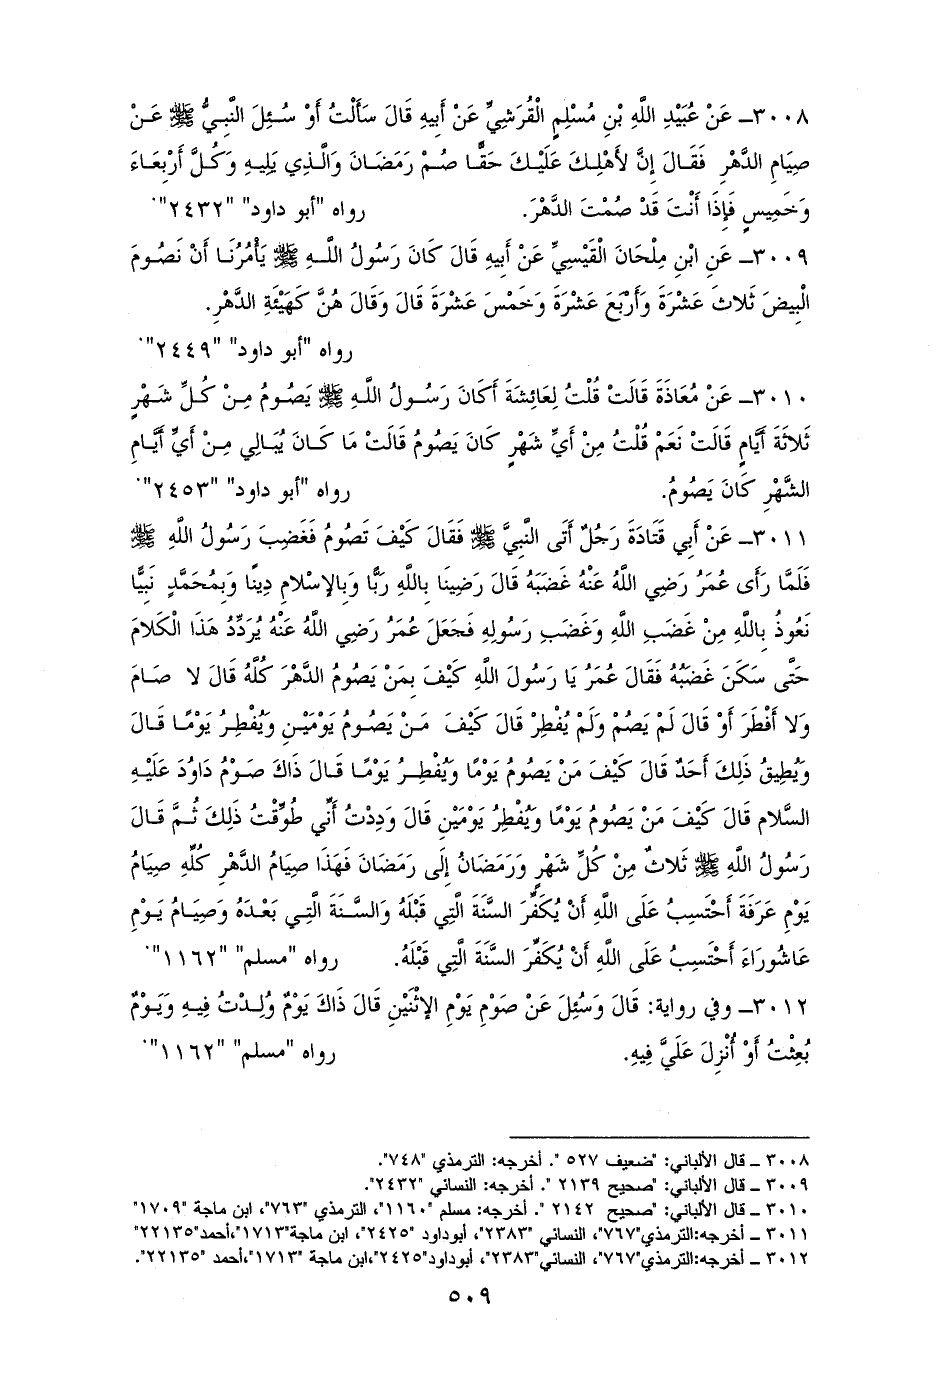 ٣٠٠٨ـ عَنْ عُبَيْدِ اللَّهِ بْنِ مُسْلِمٍ الْقُرَشِيِّ عَنْ أَبِيهِ قَالَ سَأَلْتُ أَوْ سُئِلَ النَّبِيُّ ﷺ عَنْ
صِيَامِ الدَّهْرِ فَقَالَ إِنَّ لأَهْلِكَ عَلَيْكَ حَقًّا صُمْ رَمَضَانَ وَالَّذِي يَلِيهِ وَكُلَّ أَرْبِعَاءَ
وَخَمِيسٍ فَإِذَا أَنْتَ قَدْ صُمْتَ الدَّهْرَ. رواه "أبو داود" "٢٤٣٢".
٣٠٠٩ـ عَنِ ابْنِ مِلْحَانَ الْقَيْسِيِّ عَنْ أَبِيهِ قَالَ كَانَ رَسُولُ اللَّهِ ﷺ يَأْمُرُنَا أَنْ نَصُومَ
الْبِيضَ ثَلاثَ عَشْرَةَ وَأَرْبَعَ عَشْرَةَ وَخَمْسَ عَشْرَةَ قَالَ وَقَالَ هُنَّ كَهَيْئَةِ الدَّهْرِ.
رواه "أبو داود" "٢٤٤٩".
٣٠١٠ـ عَنْ مُعَاذَةَ قَالَتْ قُلْتُ لِعَائِشَةَ أَكَانَ رَسُولُ اللَّهِ ﷺ يَصُومُ مِنْ كُلِّ شَهْرٍ
ثَلاثَةَ أَيَّامٍ قَالَتْ نَعَمْ قُلْتُ مِنْ أَيِّ شَهْرٍ كَانَ يَصُومُ قَالَتْ مَا كَانَ يُبَالِي مِنْ أَيِّ أَيَّامِ
الشَّهْرِ كَانَ يَصُومُ. رواه "أبو داود" "٢٤٥٣".
٣٠١١ـ عَنْ أَبِي قَتَادَةَ رَجُلٌ أَتَى النَّبِيَّ ﷺ فَقَالَ كَيْفَ تَصُومُ فَغَضِبَ رَسُولُ اللَّهِ ﷺ
فَلَمَّا رَأَى عُمَرُ رَضِي اللَّهُ عَنْهُ غَضَبَهُ قَالَ رَضِينَا بِاللَّهِ رَبًّا وَبِالإِسْلامِ دِينًا وَبِمُحَمَّدٍ نَبِيًّا
نَعُوذُ بِاللَّهِ مِنْ غَضَبِ اللَّهِ وَغَضَبِ رَسُولِهِ فَجَعَلَ عُمَرُ رَضِي اللَّهُ عَنْهُ يُرَدِّدُ هَذَا الْكَلامَ
حَتَّى سَكَنَ غَضَبُهُ فَقَالَ عُمَرُ يَا رَسُولَ اللَّهِ كَيْفَ بِمَنْ يَصُومُ الدَّهْرَ كُلَّهُ قَالَ لا صَامَ
وَلا أَفْطَرَ أَوْ قَالَ لَمْ يَصُمْ وَلَمْ يُفْطِرْ قَالَ كَيْفَ مَنْ يَصُومُ يَوْمَيْنِ وَيُفْطِرُ يَوْمًا قَالَ
وَيُطِيقُ ذَلِكَ أَحَدٌ قَالَ كَيْفَ مَنْ يَصُومُ يَوْمًا وَيُفْطِرُ يَوْمًا قَالَ ذَاكَ صَوْمُ دَاوُدَ عَلَيْهِ
السَّلام قَالَ كَيْفَ مَنْ يَصُومُ يَوْمًا وَيُفْطِرُ يَوْمَيْنِ قَالَ وَدِدْتُ أَنِّي طُوِّقْتُ ذَلِكَ ثُمَّ قَالَ
رَسُولُ اللَّهِ ﷺ ثَلاثٌ مِنْ كُلِّ شَهْرٍ وَرَمَضَانُ إِلَى رَمَضَانَ فَهَذَا صِيَامُ الدَّهْرِ كُلِّهِ صِيَامُ
يَوْمِ عَرَفَةَ أَحْتَسِبُ عَلَى اللَّهِ أَنْ يُكَفِّرَ السَّنَةَ الَّتِي قَبْلَهُ وَالسَّنَةَ الَّتِي بَعْدَهُ وَصِيَامُ يَوْمِ
عَاشُورَاءَ أَحْتَسِبُ عَلَى اللَّهِ أَنْ يُكَفِّرَ السَّنَةَ الَّتِي قَبْلَهُ. رواه "مسلم" "١١٦٢".
٣٠١٢ـ وفي رواية: قَالَ وَسُئِلَ عَنْ صَوْمِ يَوْمِ الِاثْنَيْنِ قَالَ ذَاكَ يَوْمٌ وُلِدْتُ فِيهِ وَيَوْمٌ
بُعِثْتُ أَوْ أُنْزِلَ عَلَيَّ فِيهِ. رواه "مسلم" "١١٦٢".
٣٠٠٨ ـ قال الألباني: "ضعيف ٥٢٧ ". أخرجه: الترمذي "٧٤٨".
٣٠٠٩ ـ قال الألباني: "صحيح ٢١٣٩ ". أخرجه: النسائي "٢٤٣٢".
٣٠١٠ ـ قال الألباني: "صحيح ٢١٤٢ ". أخرجه: مسلم "١١٦٠"، الترمذي "٧٦٣"، ابن ماجة "١٧٠٩"
٣٠١١ ـ أخرجه:الترمذي"٧٦٧"، النسائي "٢٣٨٣"، أبوداود "٢٤٢٥"، ابن ماجة"١٧١٣"،أحمد"٢٢١٣٥"
٣٠١٢ ـ أخرجه:الترمذي"٧٦٧"، النسائي"٢٣٨٣"، أبوداود"٢٤٢٥"،ابن ماجة "١٧١٣"،أحمد "٢٢١٣٥".
٥٠٩